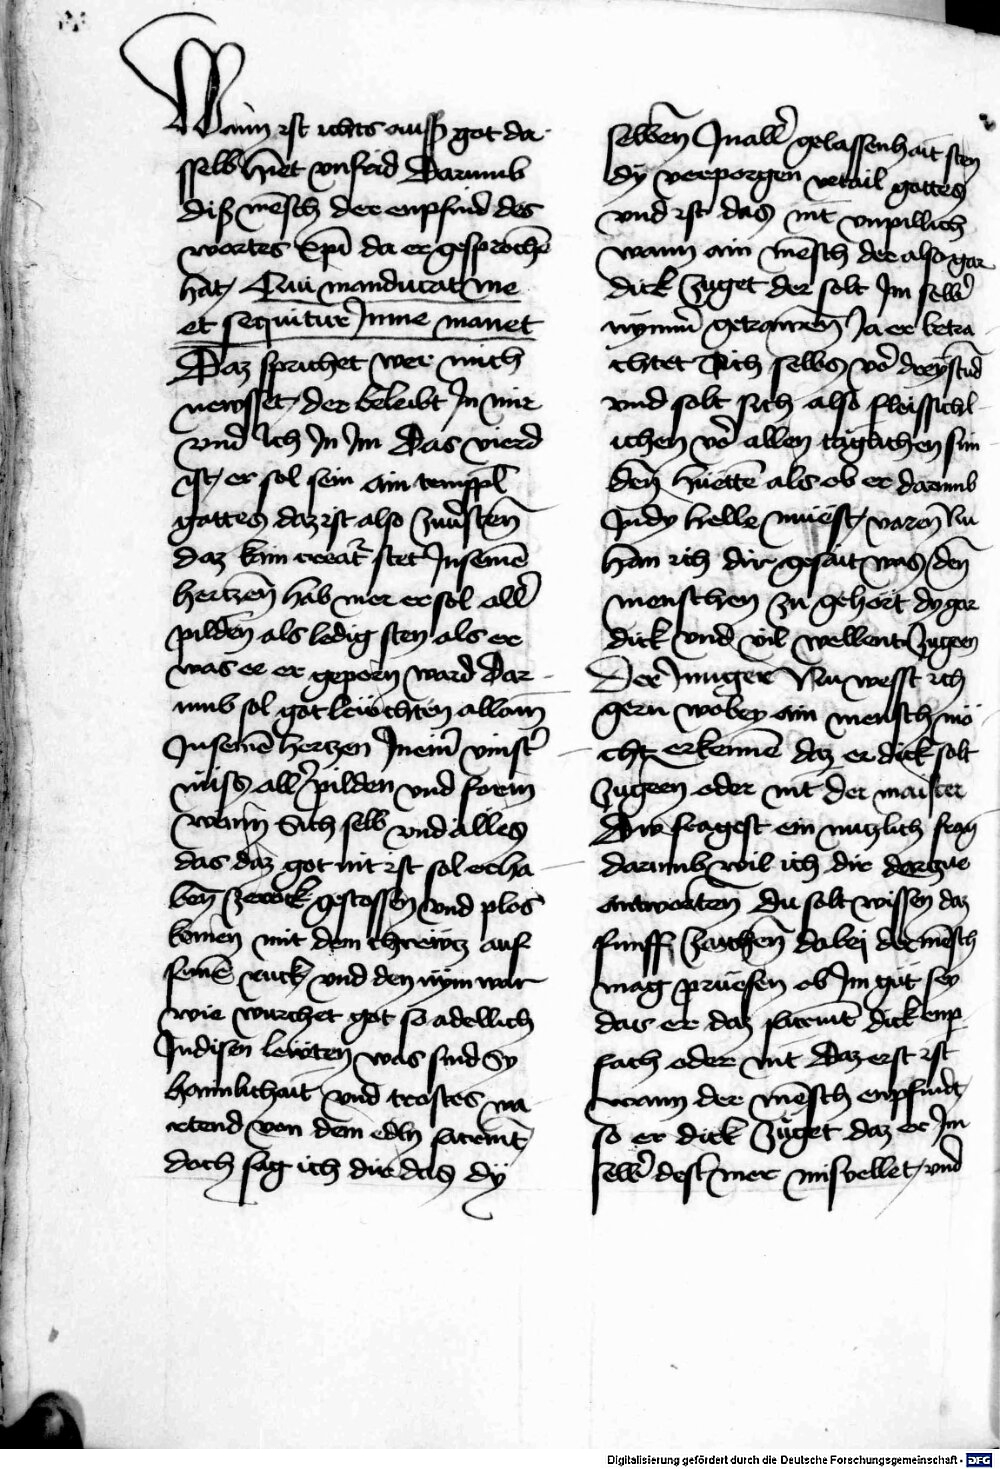 Wann ist ichts ausß got da
sselb hiet vnfrid Darumb
diß mēsch der enpfind des
wortes Xpī da er gesprochē
hat, Qui manducat me
et sequitur Inme manet
Daz sprichet wer mich
newsset, der beleibt Jn mir
vnd Jch Jn Jm Das vierd
ist, er sol sein ain tempel
gottes daz ist also zuuersten
daz kain creatr stet Jnseinē
hertzen hab mer er sol aller
pilden als ledig sten als er
was ee er geporn ward Dar
umb sol got lewchten allain
Jnseinē hertzen Jneinr vinster
niss aller pilden vnd form
wann Sich selb vnd alles
das daz got nit ist sol er ha
ben zeruck gestossen vnd plos
komen mit dem chrewtz auf
seinē ruck, vnd den nym war
wie wurchet got so adellich
Jndisen lewten was sind Sy
haimlichait vnd trostes wa
rtend von dem edln sacrmt,
doch sag ich dir das dy
selben Jnaller gelassenhait sten
dy verporgen vrtail gottes
vnd ist das nit vnpillich
wann ain mēsch der also gar
dick zuget der solt Jm selber
nymmer getrawen Ja er betra
chtet Sich selbs vor drey stund
vnd solt sich also fleissichl
ichen vor allen täglichen sün
den hüetten als ob er darumb
Jndy helle müest, varen Nu
han ich dir gesait was den
menschen zu gehört dy gar
dick vnd vil wellent zugeen
Der Junger Nu wesst ich
gern wobey ain mensch mö
cht erkennē daz er dick solt
zugeen oder nit Der maister
Du fragest ein nutzlich frag
darumb wil ich dir dorzue
antworten Du solt wissen daz
funff zaichen dabei der mēsch
mag pruefen ob Jm gut sey
das er daz sacrmt dick enp
fach oder nit Daz erst ist
wann der mēsch enpfindt,
so er dick zuget daz er Jm
selber dest mer misvellet, vnd
Digitalisierung gefördert durch die Deutsche Forschungsgemeinschaft - DFG